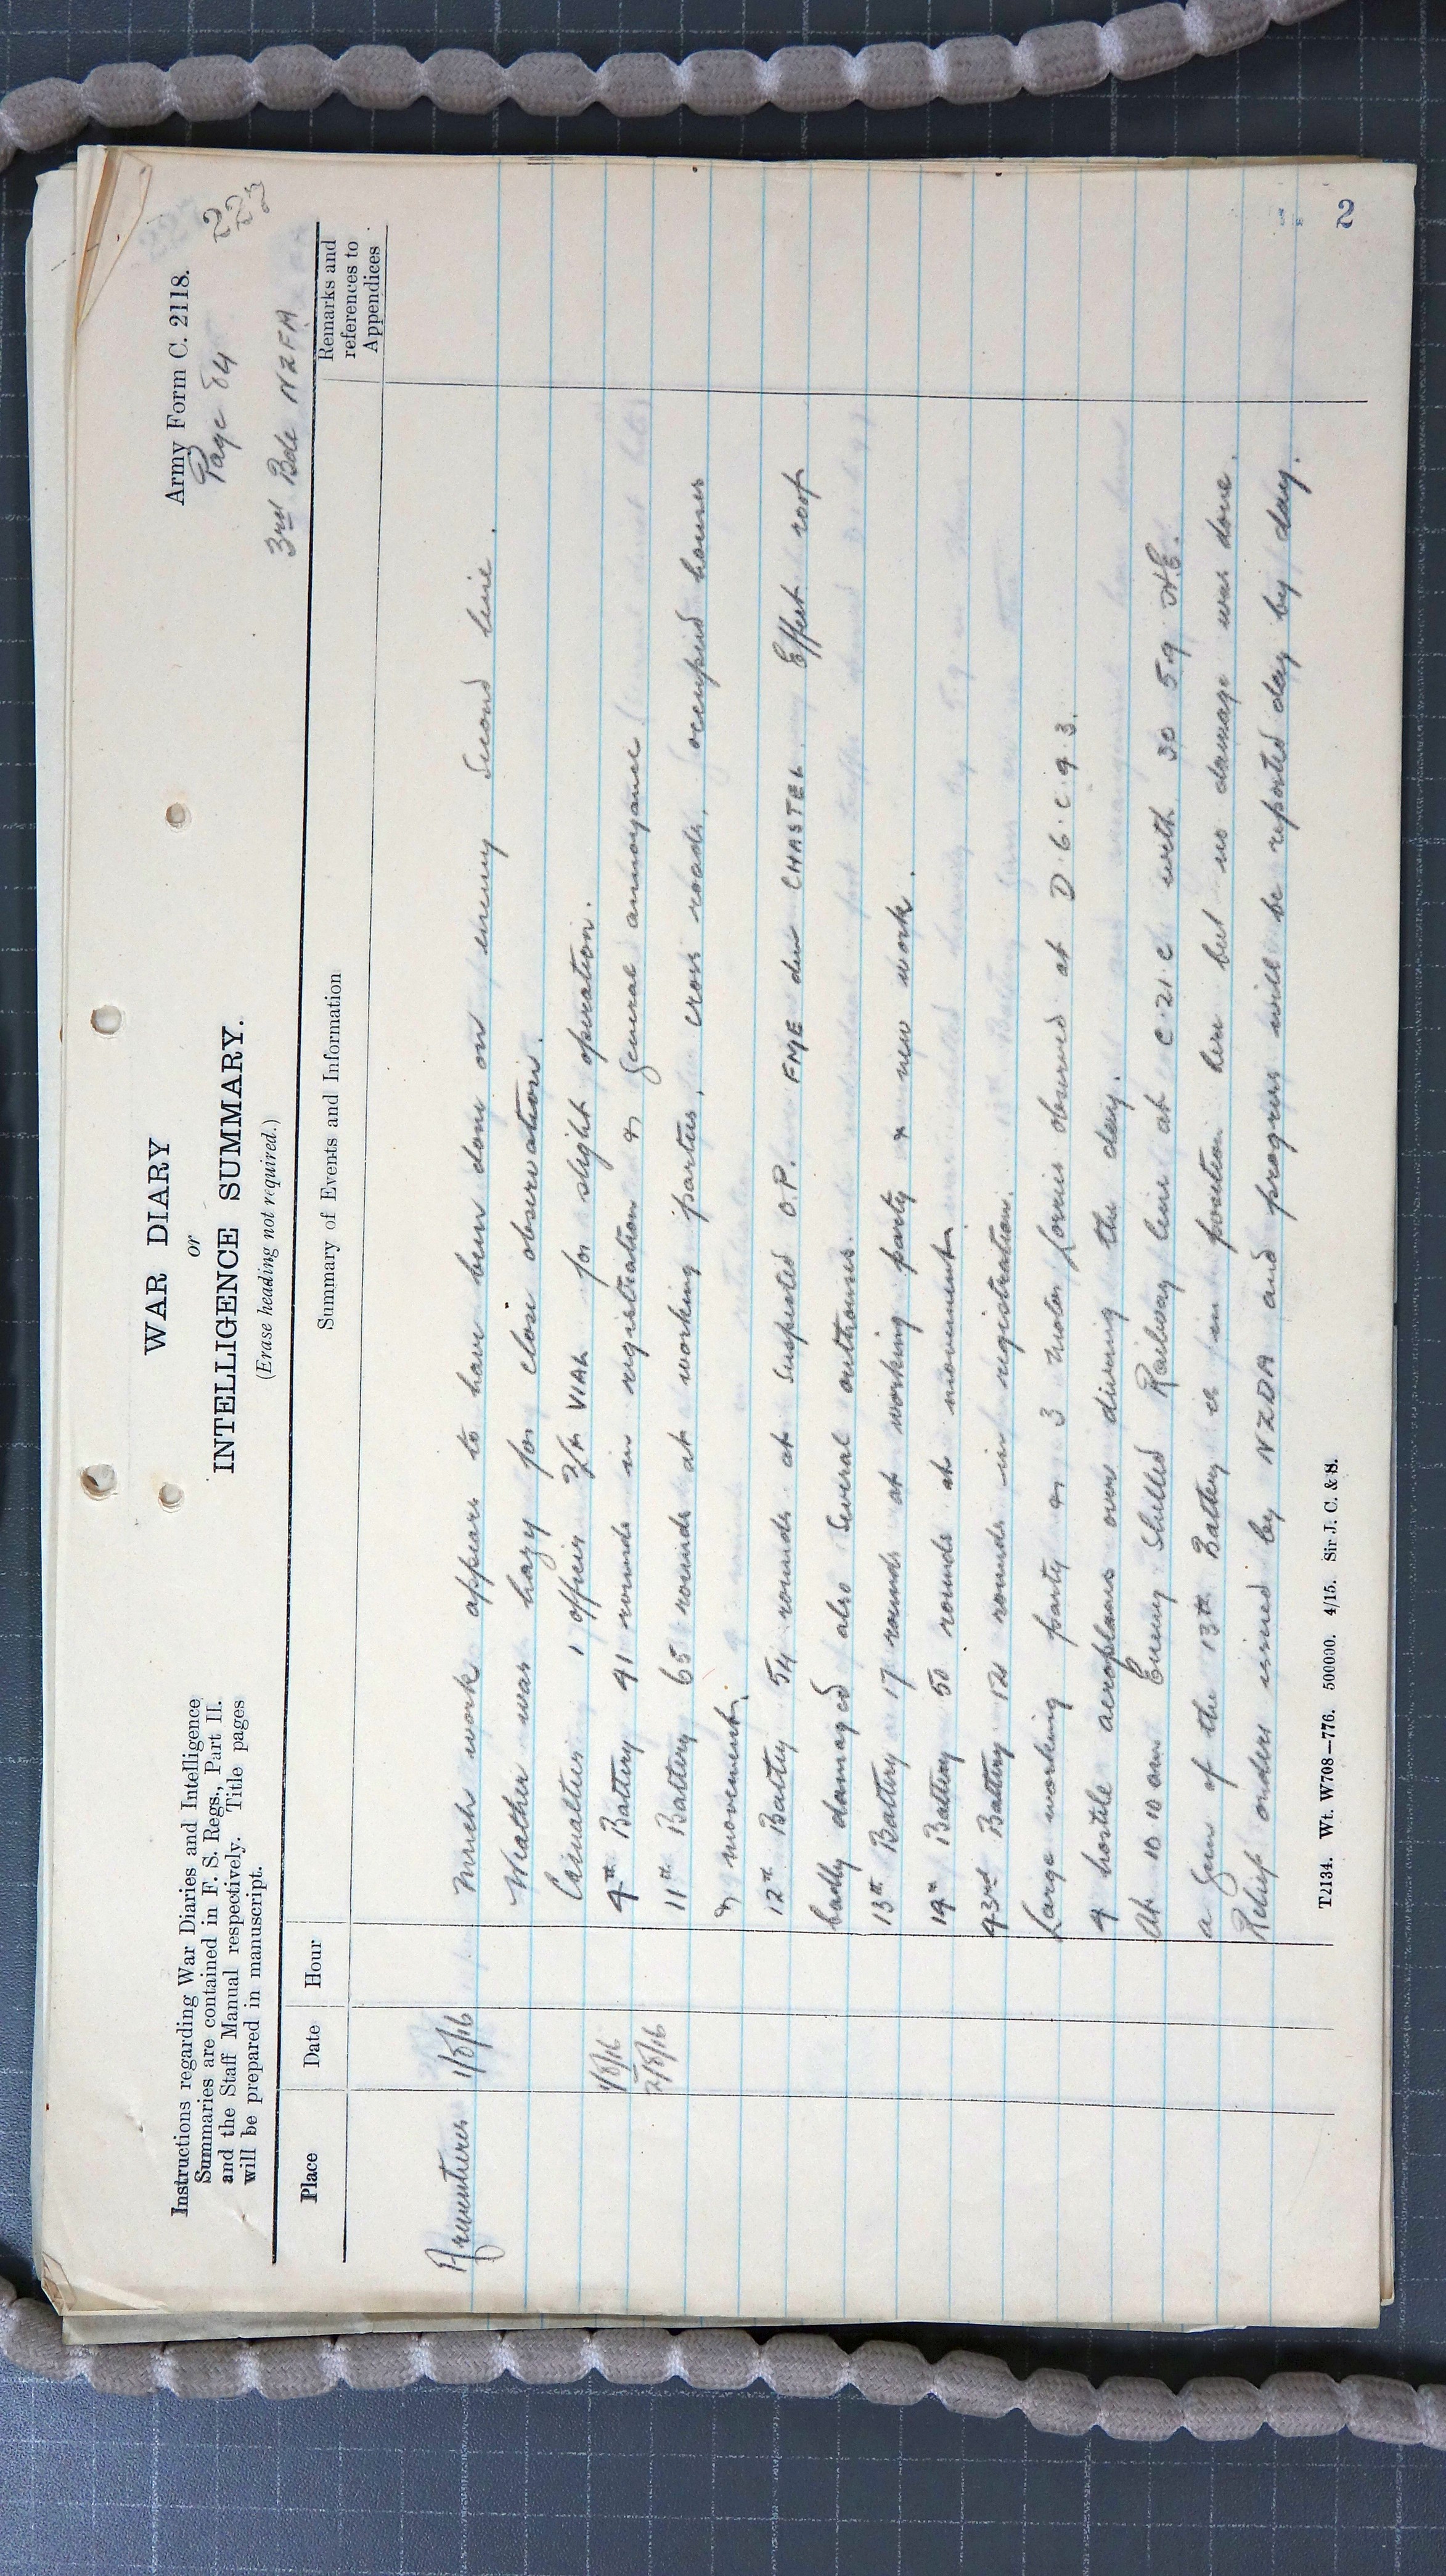 Army Form C. 2118.
Page 84
222
3rd Bde NZFA
WAR DIARY
or
INTELLIGENCE SUMMARY.
(Erase heading not required.)
Instructions regarding War Diaries and Intelligence
Summaries are contained in F. S. Regs., Part II.
and the Staff Manual respectively. Title pages
will be prepared in manuscript.
Place Date Hour Summary of Events and Information Remarks and references to Appendices
Armentieres 1/8/16 Much work appears to have been done on enemy second line.
Weather was hazy for close observation.
Casualties 1 officer VIAL for slight operation.
1/8/16 4th Battery 41 rounds in registration & General annoyance
2/8/16 11th Battery 65 rounds at working parties, cross roads, occupied houses
& movement.
12th Battery 54 rounds at suspected O.P. FME du CHASTEL. Effect roof
badly damaged also several outhouses.
13th Battery 17 rounds at working party & new work.
19th Battery 50 rounds at movement.
93rd Battery 121 rounds in registration.
Large working party & 3 motor lorries observed at D.6.c.9.3.
9 hostile aeroplanes over during the day.
At 10 10 am Enemy shelled Railway line at C.21.c with 30 5.9 H.E.
a Gun of the 13th Battery is in position here but no damage was done.
Relief orders issued by NZDA and progress will be reported day by day.
T2134. Wt. W708—776. 500000. 4/15. Sir J. C. & S.
2